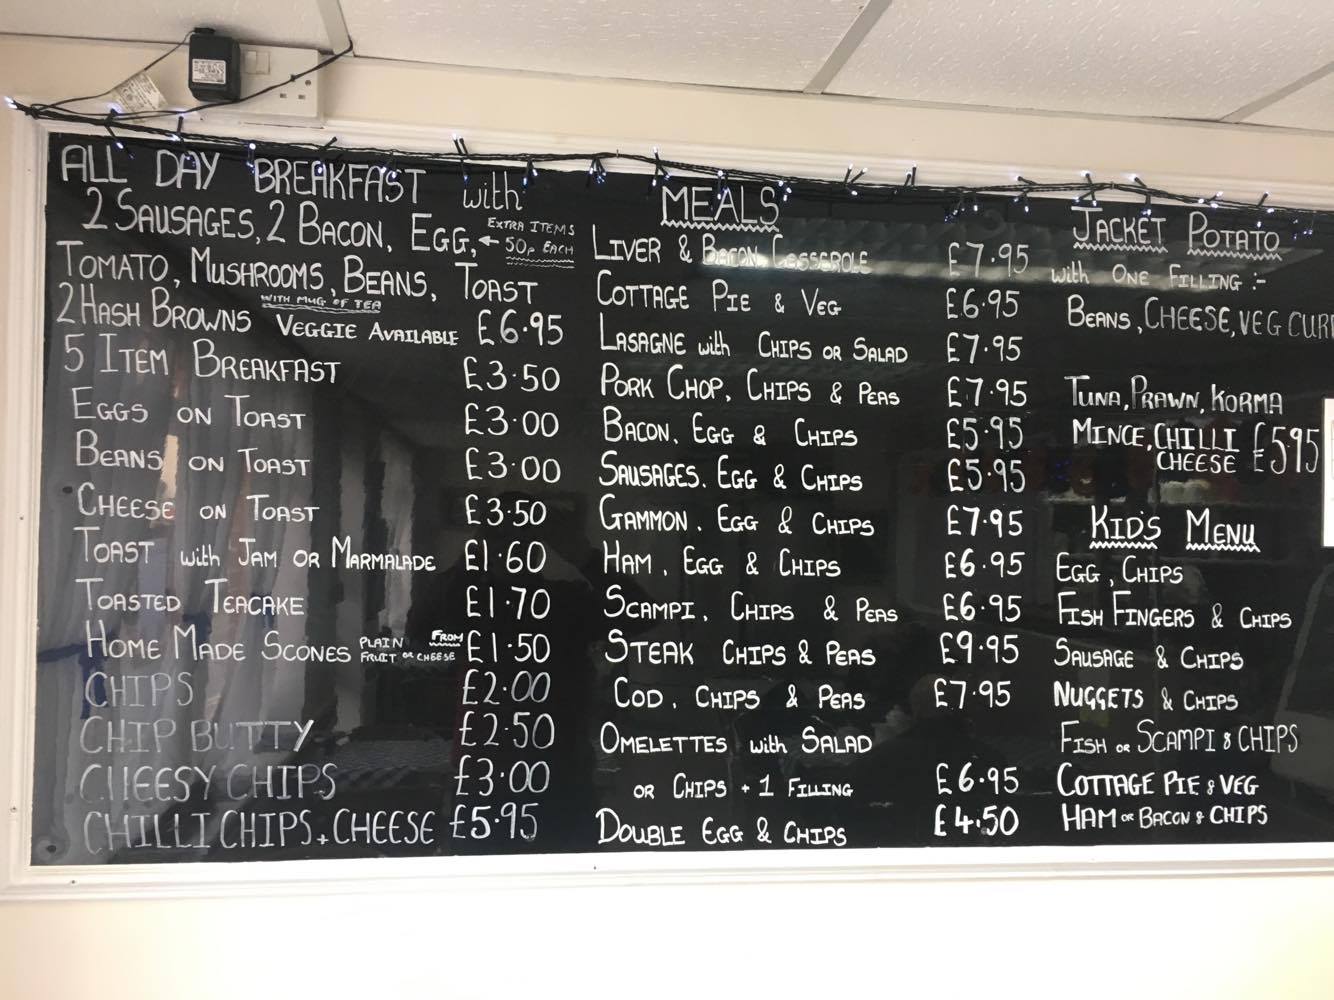 ALL DAY BREAKFAST with
2 SAUSAGES, 2 BACON, EGG,
EXTRA ITEMS
← 50p EACH
TOMATO, MUSHROOMS, BEANS, TOAST
WITH MUG OF TEA
2 HASH BROWNS VEGGIE AVAILABLE £6.95
5 ITEM BREAKFAST £3.50
EGGS ON TOAST £3.00
BEANS ON TOAST £3.00
CHEESE ON TOAST £3.50
TOAST with JAM OR MARMALADE £1.60
TOASTED TEACAKE £1.70
HOME MADE SCONES PLAIN FRUIT OR CHEESE FROM £1.50
CHIPS £2.00
CHIP BUTTY £2.50
CHEESY CHIPS £3.00
CHILLI CHIPS + CHEESE £5.95
MEALS
LIVER & BACON CASSEROLE £7.95
COTTAGE PIE & VEG £6.95
LASAGNE with CHIPS OR SALAD £7.95
PORK CHOP, CHIPS & PEAS £7.95
BACON, EGG & CHIPS £5.95
SAUSAGES, EGG & CHIPS £5.95
GAMMON, EGG & CHIPS £7.95
HAM, EGG & CHIPS £6.95
SCAMPI, CHIPS & PEAS £6.95
STEAK CHIPS & PEAS £9.95
COD, CHIPS & PEAS £7.95
OMELETTES with SALAD
OR CHIPS + 1 FILLING £6.95
DOUBLE EGG & CHIPS £4.50
JACKET POTATO
with ONE FILLING :-
BEANS, CHEESE, VEG
TUNA, PRAWN, KORMA
MINCE, CHILLI
CHEESE £5.95
KID'S MENU
EGG, CHIPS
FISH FINGERS & CHIPS
SAUSAGE & CHIPS
NUGGETS & CHIPS
FISH OR SCAMPI & CHIPS
COTTAGE PIE & VEG
HAM OR BACON & CHIPS